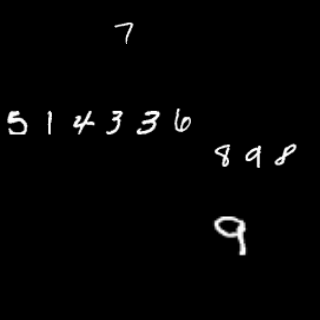 7
514336
898
9